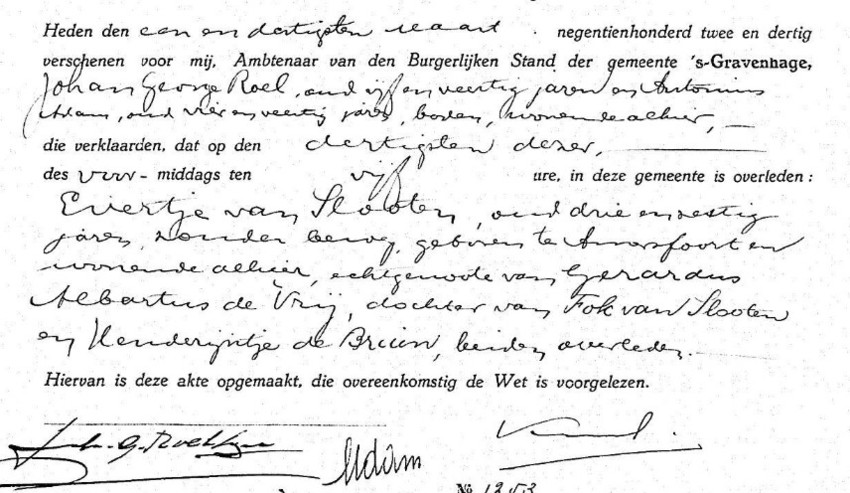 Heden den een en dertigsten Maart negentienhonderd twee en dertig
verschenen voor mij, Ambtenaar van den Burgerlijken Stand der gemeente 's-Gravenhage,
Johan George Roel, oud vijf en veertig jaren en Antonius
Adam, oud vier en veertig jaren, boden, wonende alhier,
die verklaarden, dat op den dertigsten dezer,
des voor-middags ten vijf ure, in deze gemeente is overleden:
Evertje van Slooten, oud drie en zestig
jaren, zonder beroep, geboren te Amersfoort en
wonende alhier, echtgenoote van Gerardus
Albartus de Vrij, dochter van Fok van Slooten
en Henderijntje de Bruin, beiden overleden.
Hiervan is deze akte opgemaakt, die overeenkomstig de Wet is voorgelezen.
Adam
No 1253